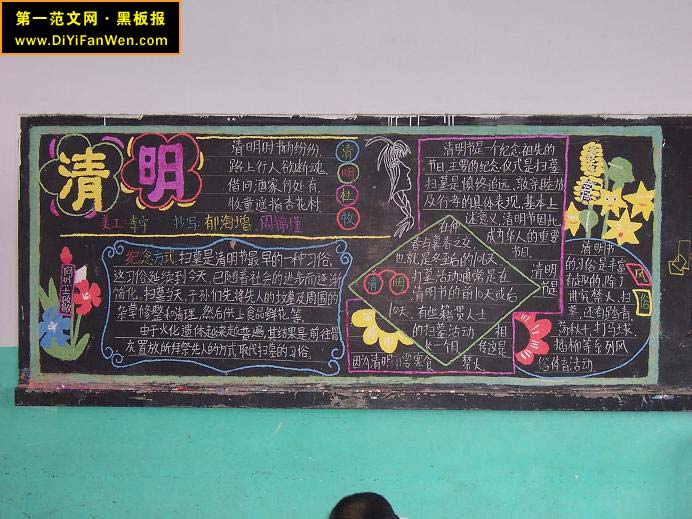 第一范文网·黑板报
www.DiYiFanWen.com
清明
清明时节雨纷纷,
路上行人欲断魂。
借问酒家何处有,
牧童遥指杏花村。
清
明
杜
牧
美工:李宁 抄写:郁海增 周锦瑾
纪念方式 扫墓是清明节最早的一种习俗,
这习俗延续到今天,已随着社会的进步而逐渐
简化。扫墓当天,子孙们先将先人的坟墓及周围的
杂草修整和清理,然后供上食品鲜花等。
由于火化遗体越来越普遍,其结果是前往骨
灰置放所拜祭先人的方式取代扫墓的习俗。
清明节是一个纪念祖先的
节日,主要的纪念仪式是扫墓,
扫墓是慎终追远、敦亲睦族
及行孝的具体表现,基本上
述意义,清明节因此
成为华人的重要
节日。
清明
节是
在仲
春与暮春之交,
也就是冬至后的106天
清明
扫墓活动通常是在
清明节的前10天或后
10天。有些籍贯人士
的扫墓活动
长一个月
相
传这是
因为清明节要寒食
禁火
清明节
的习俗是丰富
有趣的,除了
讲究禁火、扫
墓,还有踏青
荡秋千、打马球
插柳等系列风
俗体育活动
风
俗